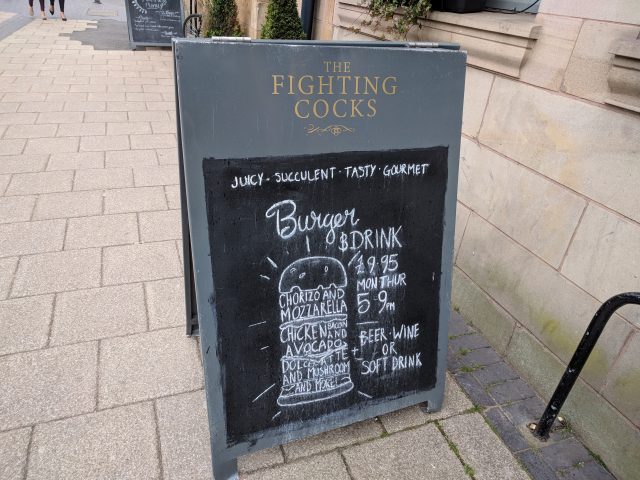 THE
FIGHTING
COCKS
JUICY · SUCCULENT · TASTY · GOURMET
Burger
$DRINK
19.95
MON THUR
5-9PM
CHORIZO AND
MOZZARELLA
CHICKEN BACON
AND
AVOCADO
DOLCELATTE
AND MUSHROOM
AND MORE!
+
BEER · WINE
OR
SOFT DRINK